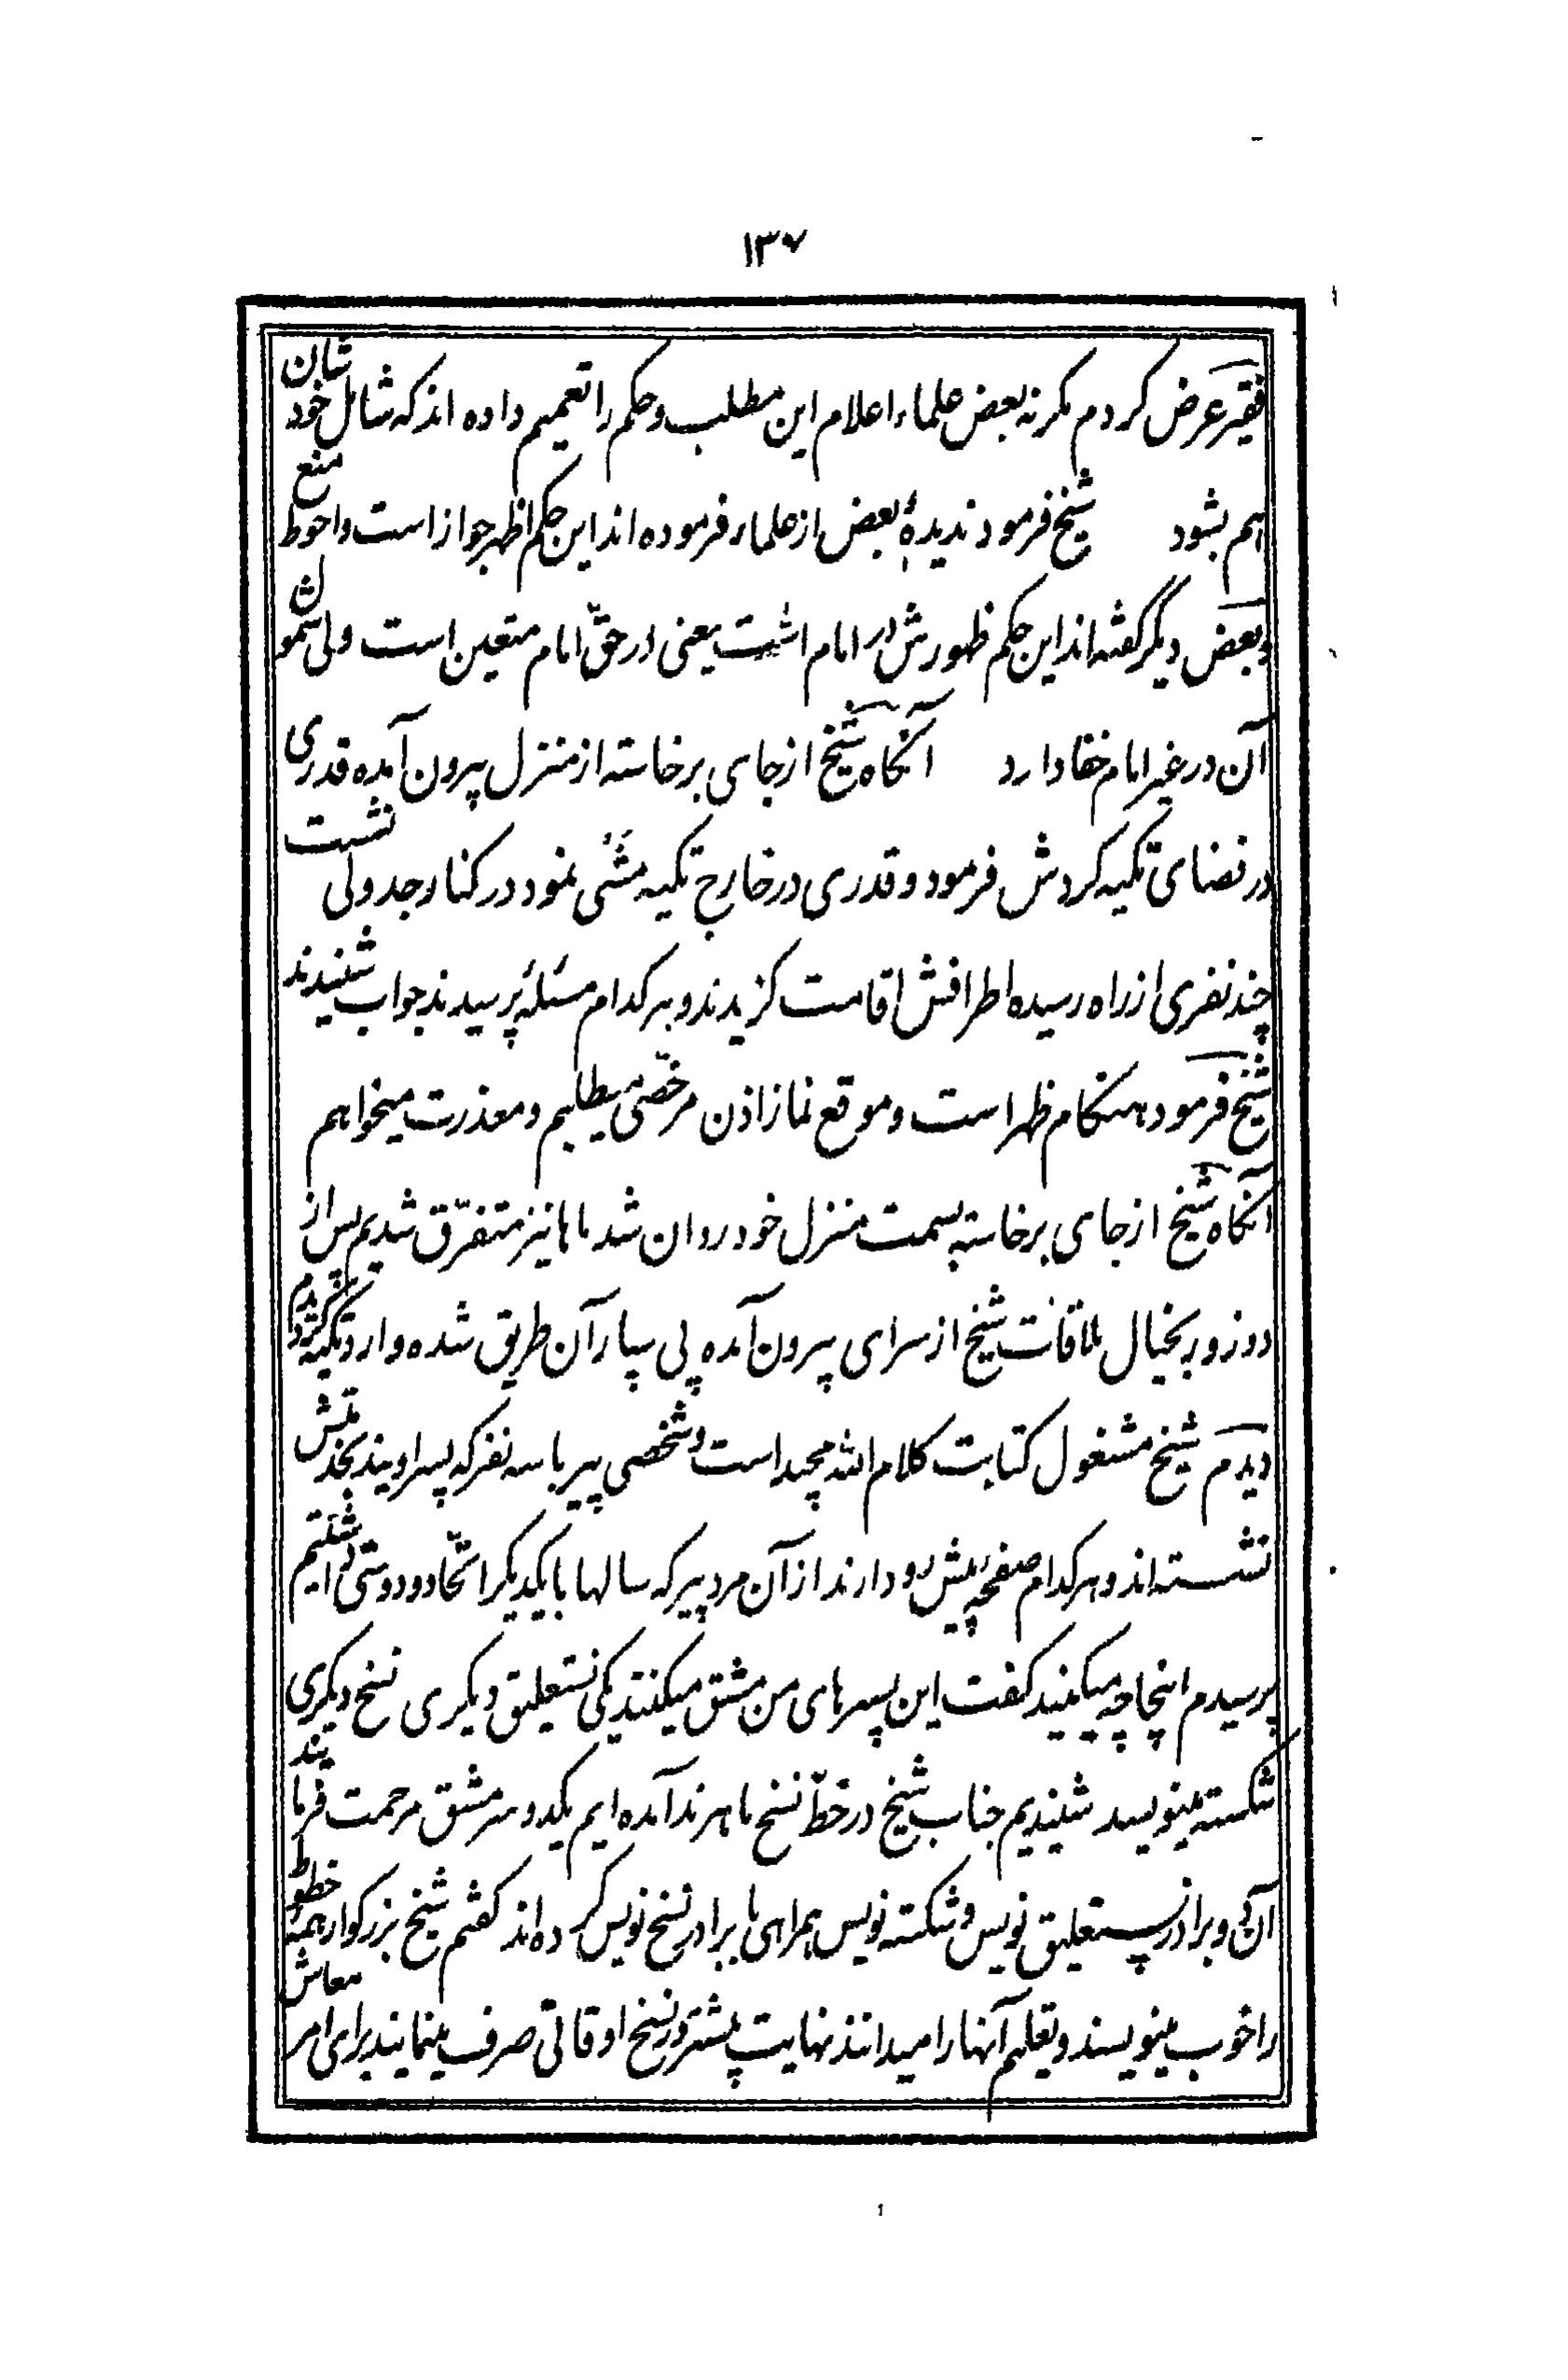 ۱۳۷
فقیر عرض کردم مکر نه بعض علماء اعلام این مطلب و حکم را تعمیم داده اند که شامل خودشان
هم بشود شیخ فرمود ندیدهٔ بعض از علماء فرموده اند این حکم اظهر جواز است و احوط منع
و بعض دیگر گفته اند این حکم ظهورش در امام است یعنی در حقّ امام متعین است ولی شمولش
آن در غیر امام خفا دارد آنکاه شیخ از جای برخاسته از منزل بیرون آمده قدری
در فضای تکیه کردش فرمود و قدری در خارج تکیه مشی نمود در کنار جدولی نشست
چند نفری از راه رسیده اطرافش اقامت کزیدند و هر کدام مسئلهٔ پرسیدند جواب شنیدند
شیخ فرمود هنکام ظهر است و موقع نماز اذن مرخّصی میطلبم و معذرت میخواهم
آنکاه شیخ از جای برخاسته بسمت منزل خود روان شد ماها نیز متفرّق شدیم پس از
دو روز بخیال ملاقات شیخ از سرای بیرون آمده پی سپار آن طریق شده وارد تکیه کردیدم
دیدم شیخ مشغول کتابت کلام الله مجید است و شخصی پیر با سه نفر که پسر اویند بخدمتش
نشسته اند و هر کدام صفحه پیش رو دارند از آن مرد پیر که سالها با یکدیکر اتّحاد و دوستی داشتیم
پرسیدم اینجا چه میکنید کفت این پسرهای من مشق میکنند یکی نستعلیق دیکری نسخ دیکری
شکسته مینویسد شنیدیم جناب شیخ در خطّ نسخ ماهرند آمده ایم یکدو سر مشق مرحمت فرمایند
آن دو برادر نستعلیق نویس و شکسته نویس همراهی با برادر نسخ نویس کرده اند کفتم شیخ بزرکوار همه خطوط
را خوب مینویسند و تعلیم آنها را میدانند نهایت بیشتر در نسخ اوقاتی صرف مینمایند برای امر معاش